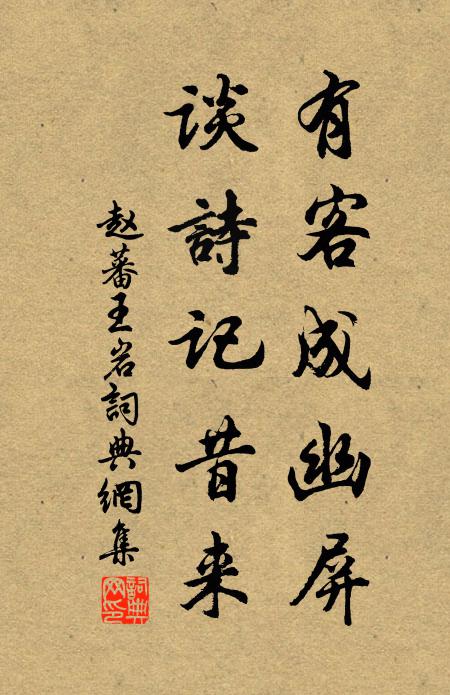 有客成幽屏
談詩記昔来
赵蕃王岩詞典網集
詞典网印